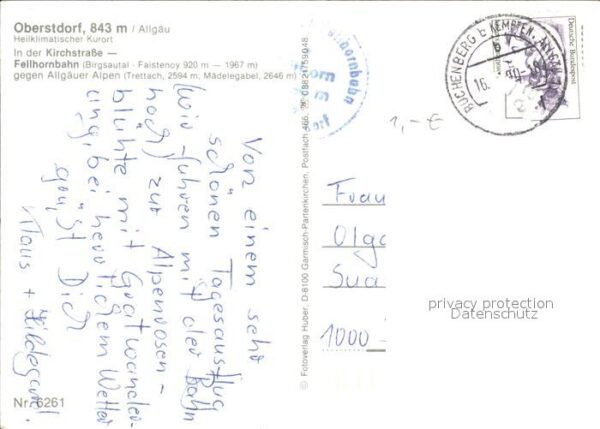 Oberstdorf, 843 m / Allgäu
Heilklimatischer Kurort
In der Kirchstraße —
Fellhornbahn (Birgsautal - Faistenoy 920 m — 1967 m)
gegen Allgäuer Alpen (Trettach, 2594 m, Mädelegabel, 2646 m)
Von einem sehr
schönen Tagesausflug
(wir fuhren mit der Bahn
hoch) zur Alpenrosen-
blühte mit Gratwander-
ung, bei herrlichem Wetter
grüßt Dich
Klaus + Hildegard.
Nr. 6261
© Fotoverlag Huber, D-8100 Garmisch-Partenkirchen, Postfach 466, ☎ 08821/759048
BUCHENBERG b KEMPTEN, ALLGÄU
b
16.
Deutsche Bundespost
1,- €
Frau
Olga
1000
privacy protection
Datenschutz